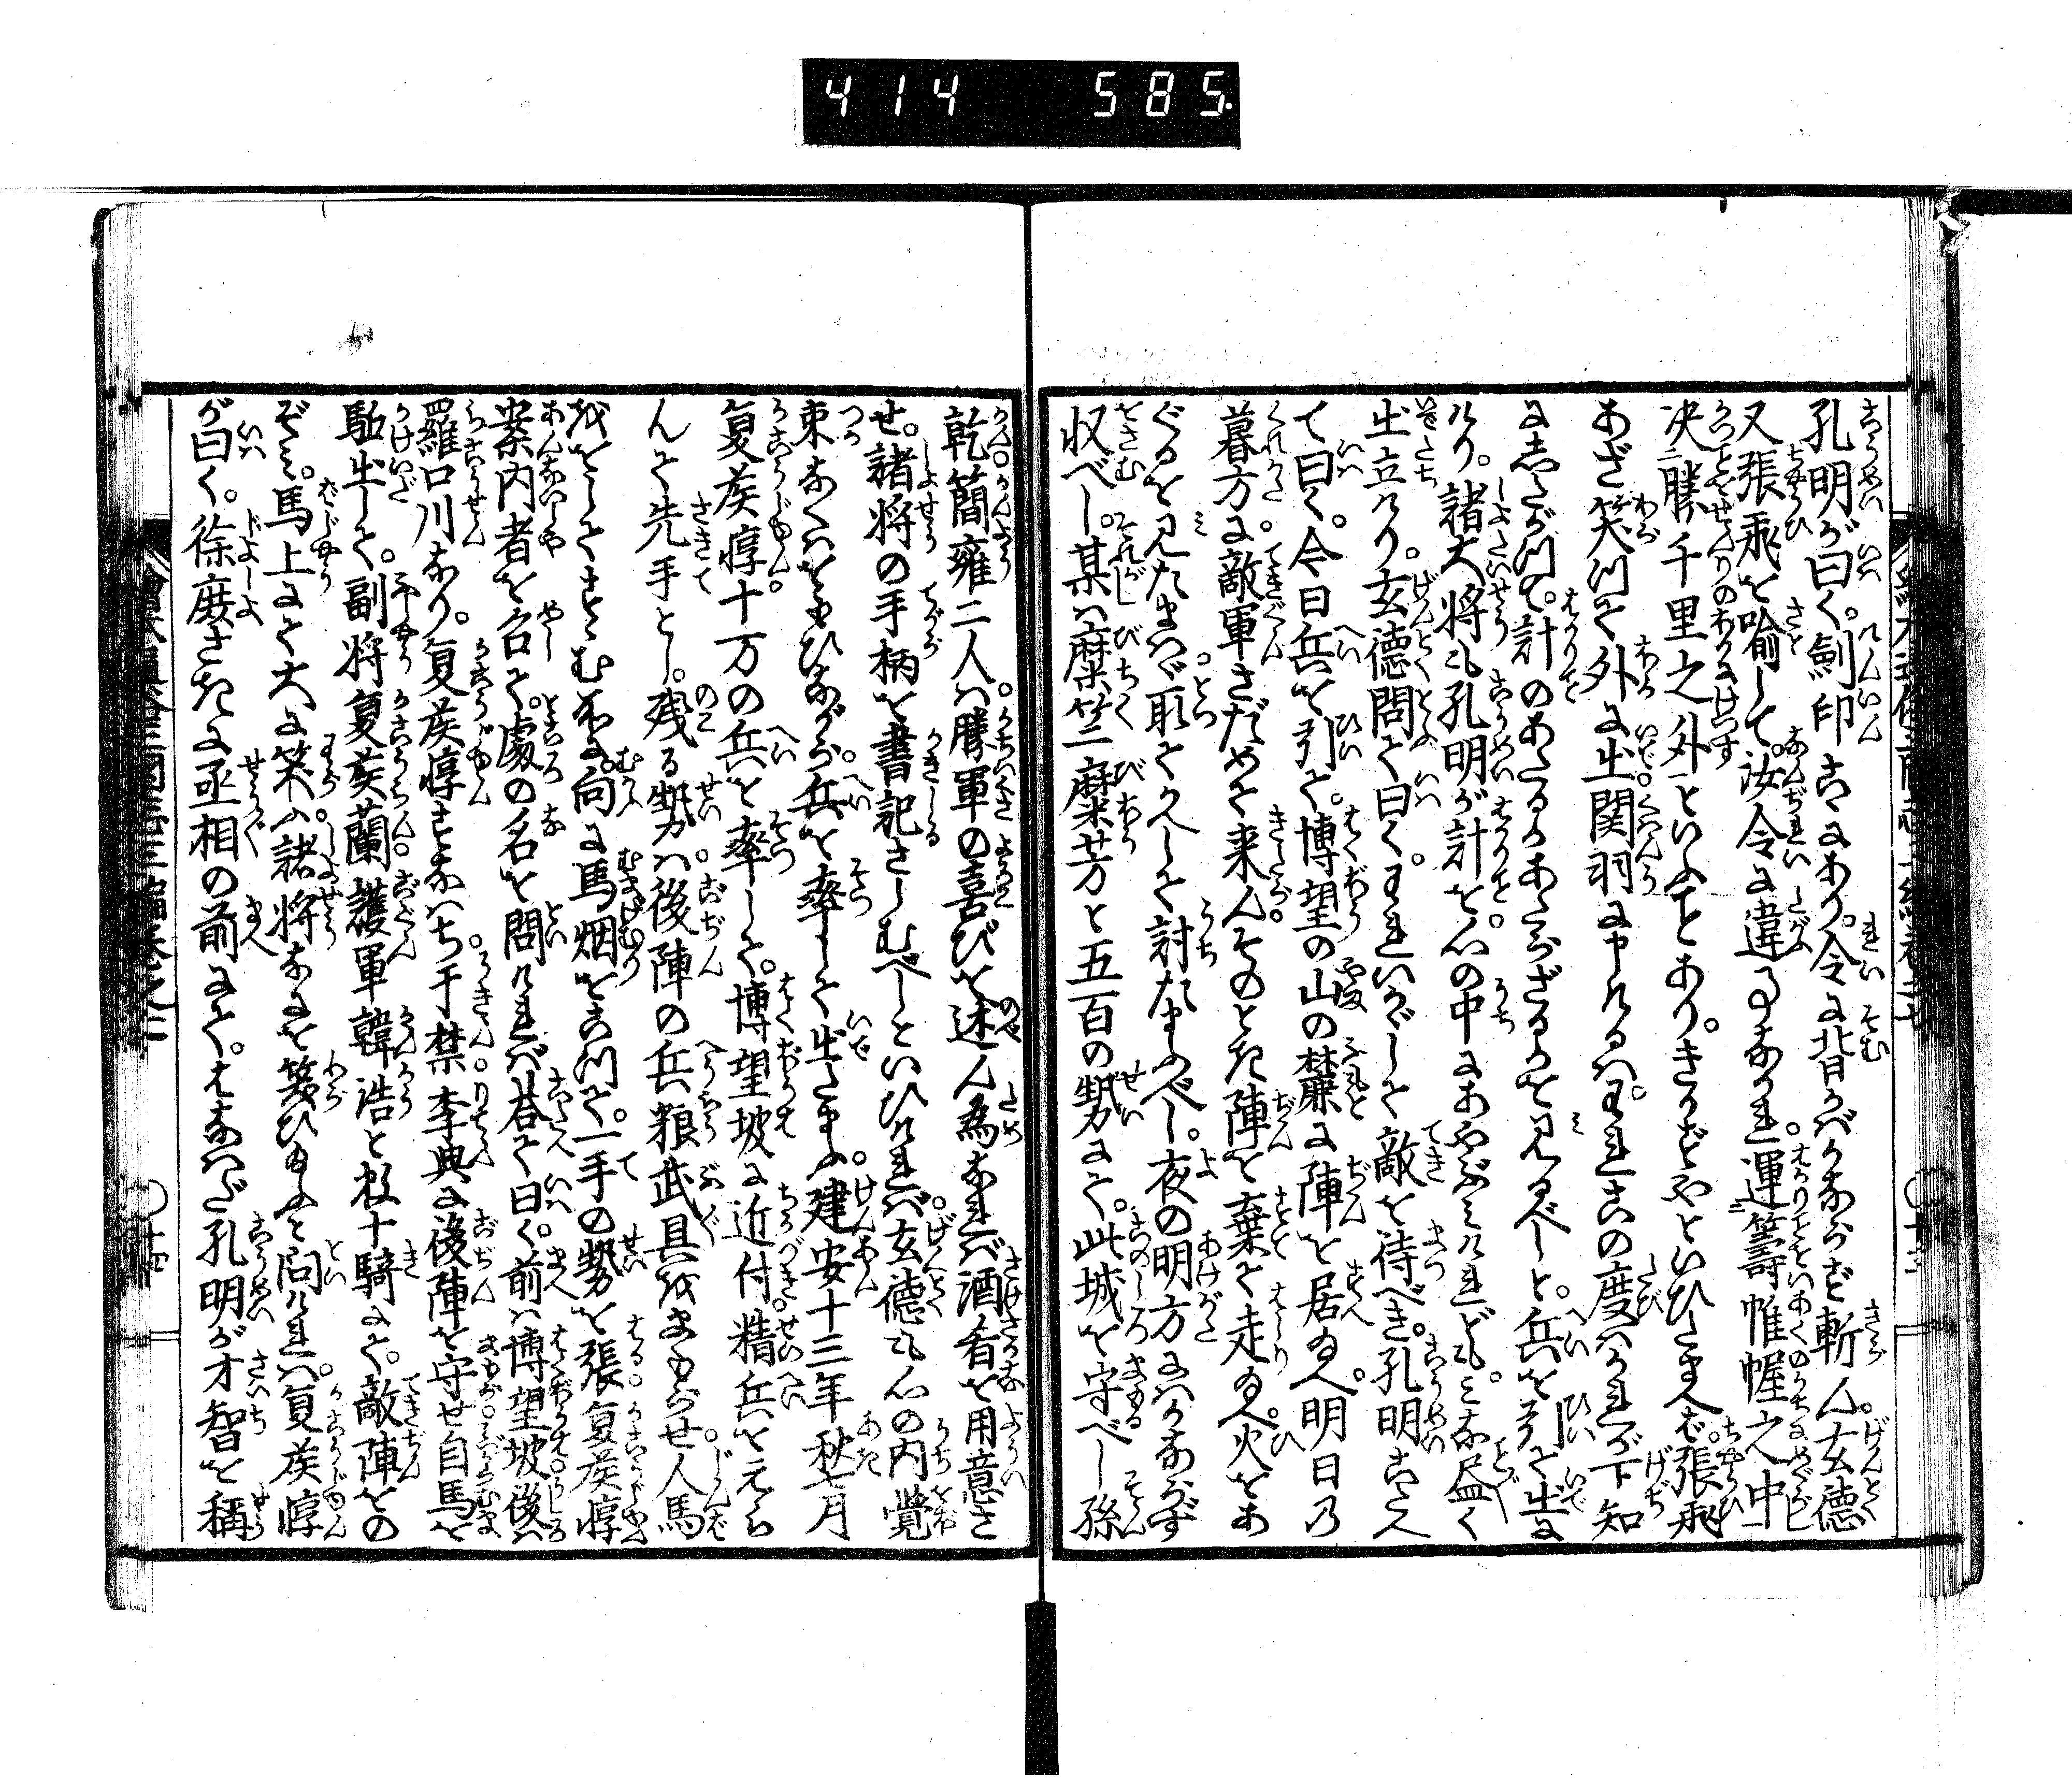 414 585
孔明が曰く。劍印こゝにあり。令に背かばかならず斬ん。玄德
又張飛を喩して。汝令に違る事なかれ。運籌帷幄之中
决勝千里之外といふことあり。きかずやといひたまへば。張飛
あざ笑つて外に出。関羽に申けるは。われこの度はかれが下知
にしたがつて。計のあたるかあたらざるかを見るべしと。兵を引て出に
けり。諸大将も孔明が計を心の中にあやぶみけれども。みな尽く
出立けり。玄德問て曰く。われいかゞして敵を待べき。孔明こたへ
て曰く。今日兵を引て。博望の山の麓に陣を居玉へ。明日の
暮方に敵軍さだめて来らん。そのとき陣を棄て走玉へ。火をあ
ぐるを見たまはゞ取てかへして討たまふべし。夜の明方にはかならず
収べし。某は糜竺糜芳と五百の勢にて。此城を守べし孫
乾簡雍二人は勝軍の喜びを述ん為なれば酒肴を用意さ
せ。諸将の手柄を書記さしむべしといひければ。玄德も心の内覚
束なくはおもひながら。兵を率して出たまふ。建安十三年秋七月
夏侯惇十万の兵を率して。博望坡に近付。精兵をえら
んで先手とし。残る勢は後陣の兵粮武具をまもらせ。人馬
をしてすゝむ所に。向に馬烟をたつて。一手の勢を張。夏侯惇
案内者を召て。處の名を問ければ答て曰く。前は博望坡後は
羅口川なり。夏侯惇すなはち于禁李典に後陣を守せ自馬を
駈出して。副将夏侯蘭護軍韓浩と数十騎にて。敵陣をの
ぞみ。馬上にて大に笑ふ。諸将なにを笑ひ玉ふと問ければ。夏侯惇
が曰く。徐庶さきに丞相の前にて。はなはだ孔明が才智を稱